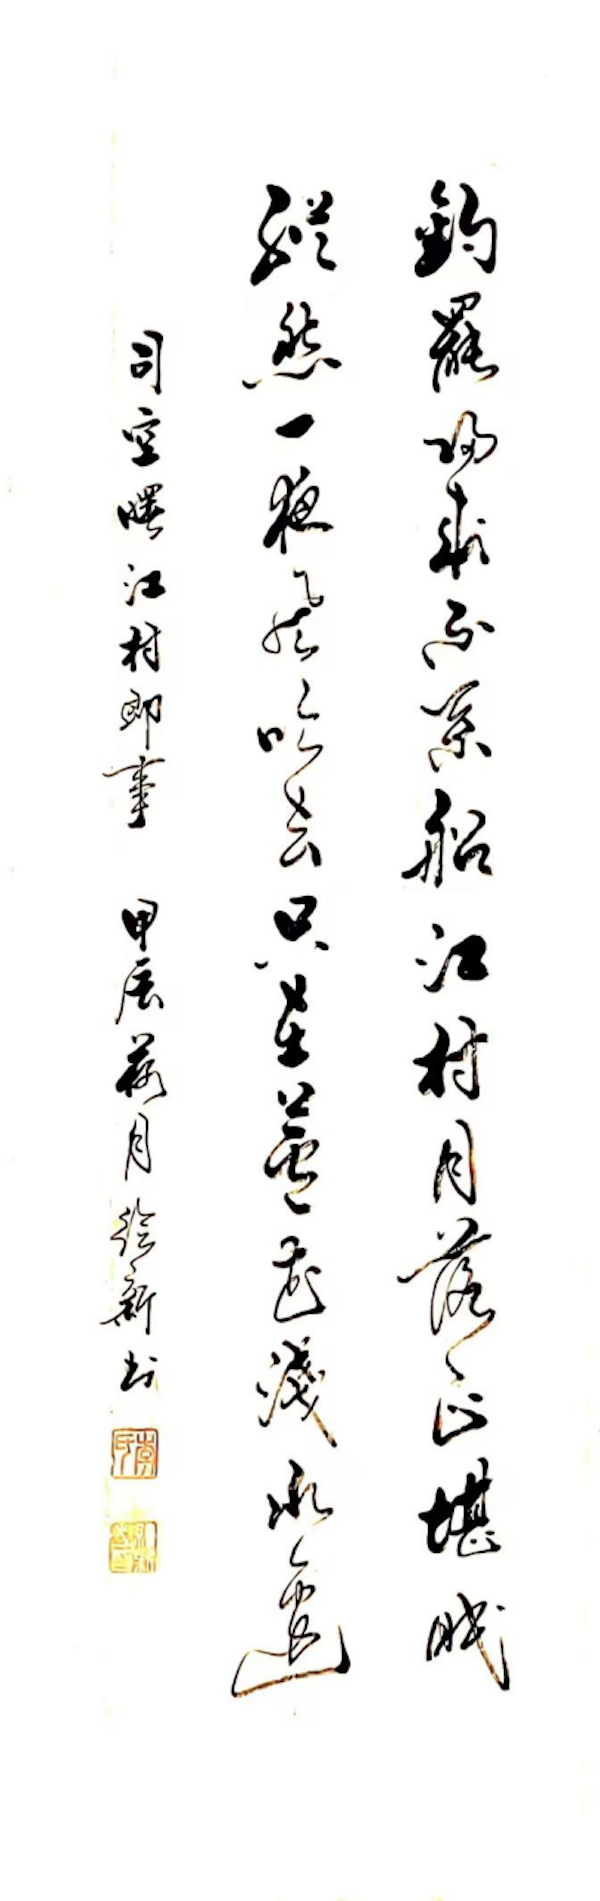 釣罷歸來不系船江村月落正堪眠
縱然一夜風吹去只在蘆花淺水邊
司空曙江村即事 甲辰月繪新书